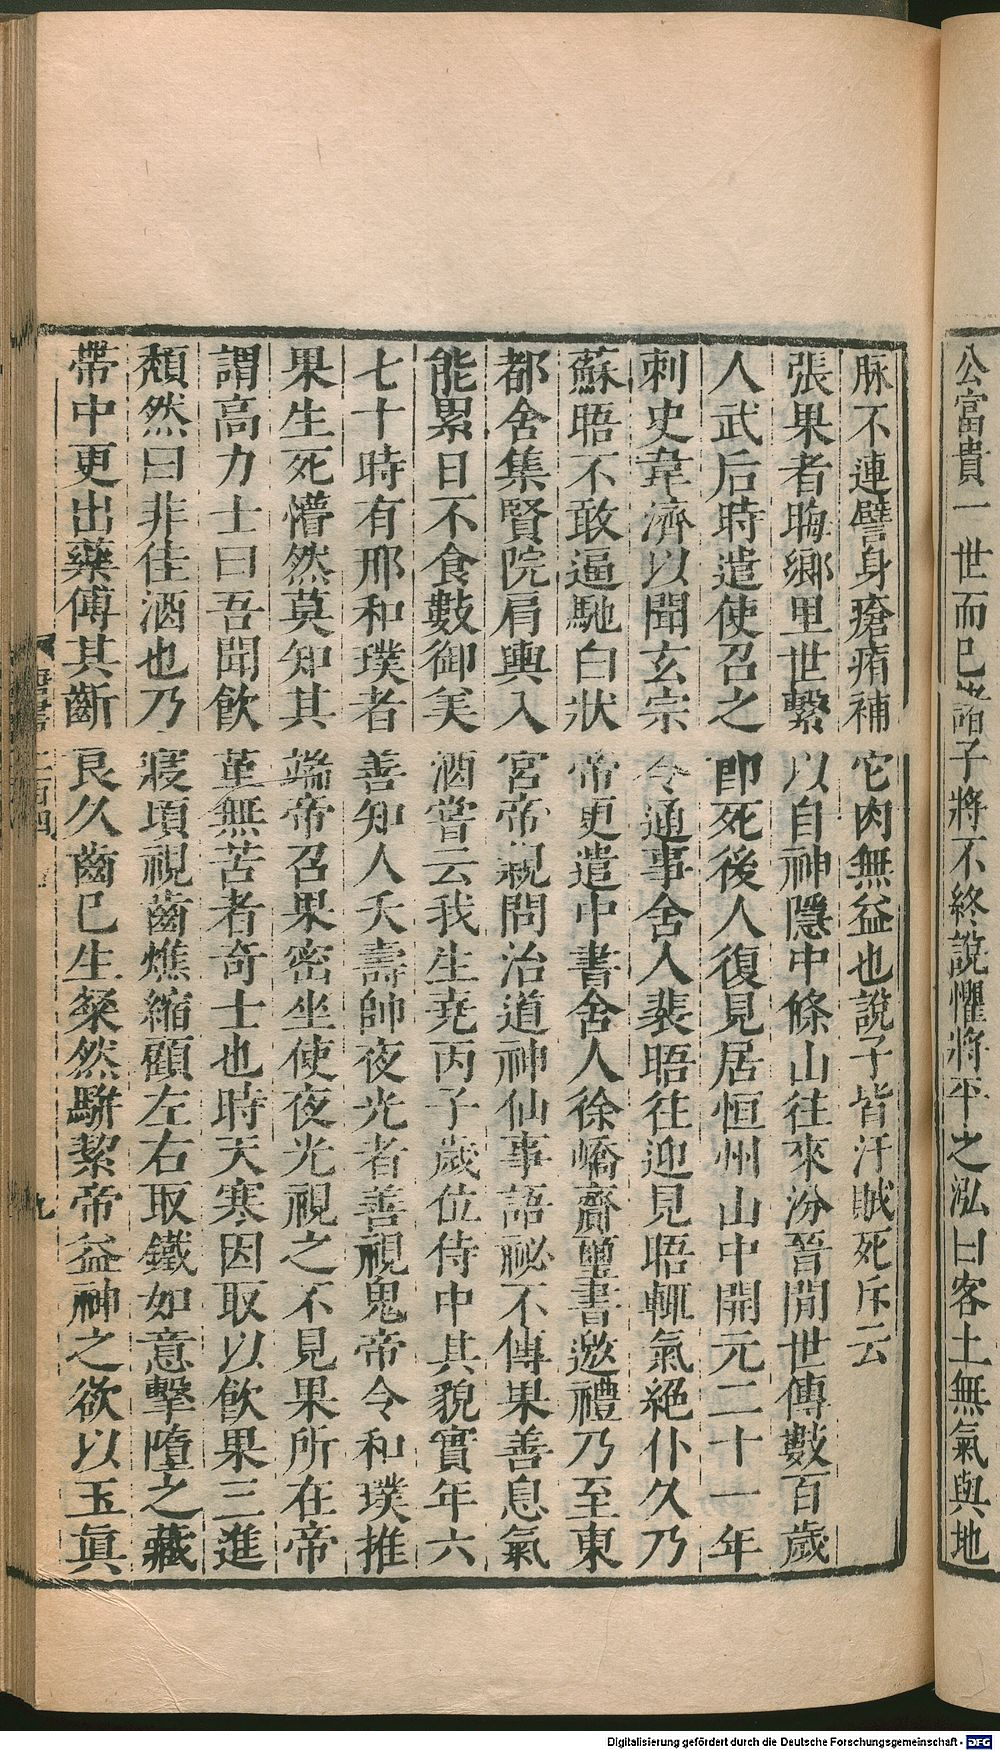 公富貴一世而已諸子將不終說懼將平之泓曰客土無氣與地
脉不連譬身瘡痏補它肉無益也說子皆汙賊死斥云
張果者晦鄉里世繫以自神隱中條山往來汾晉間世傳數百歲
人武后時遣使召之卽死後人復見居恒州山中開元二十一年
刺史韋濟以聞玄宗令通事舍人裴晤往迎見晤輒氣絕仆久乃
蘇晤不敢逼馳白狀帝更遣中書舍人徐嶠齎璽書邀禮乃至東
都舍集賢院肩輿入宮帝親問治道神仙事語祕不傳果善息氣
能累日不食數御美酒嘗云我生堯丙子歲位侍中其貌實年六
七十時有邢和璞者善知人夭壽帥夜光者善視鬼帝令和璞推
果生死懵然莫知其端帝召果密坐使夜光視之不見果所在帝
謂高力士曰吾聞飲堇無苦者奇士也時天寒因取以飲果三進
頹然曰非佳酒也乃寢頃視齒燋縮顧左右取鐵如意擊墮之藏
帶中更出藥傅其齗良久齒已生粲然騈絜帝益神之欲以玉眞
唐書二百四
九
Digitalisierung gefördert durch die Deutsche Forschungsgemeinschaft - DFG